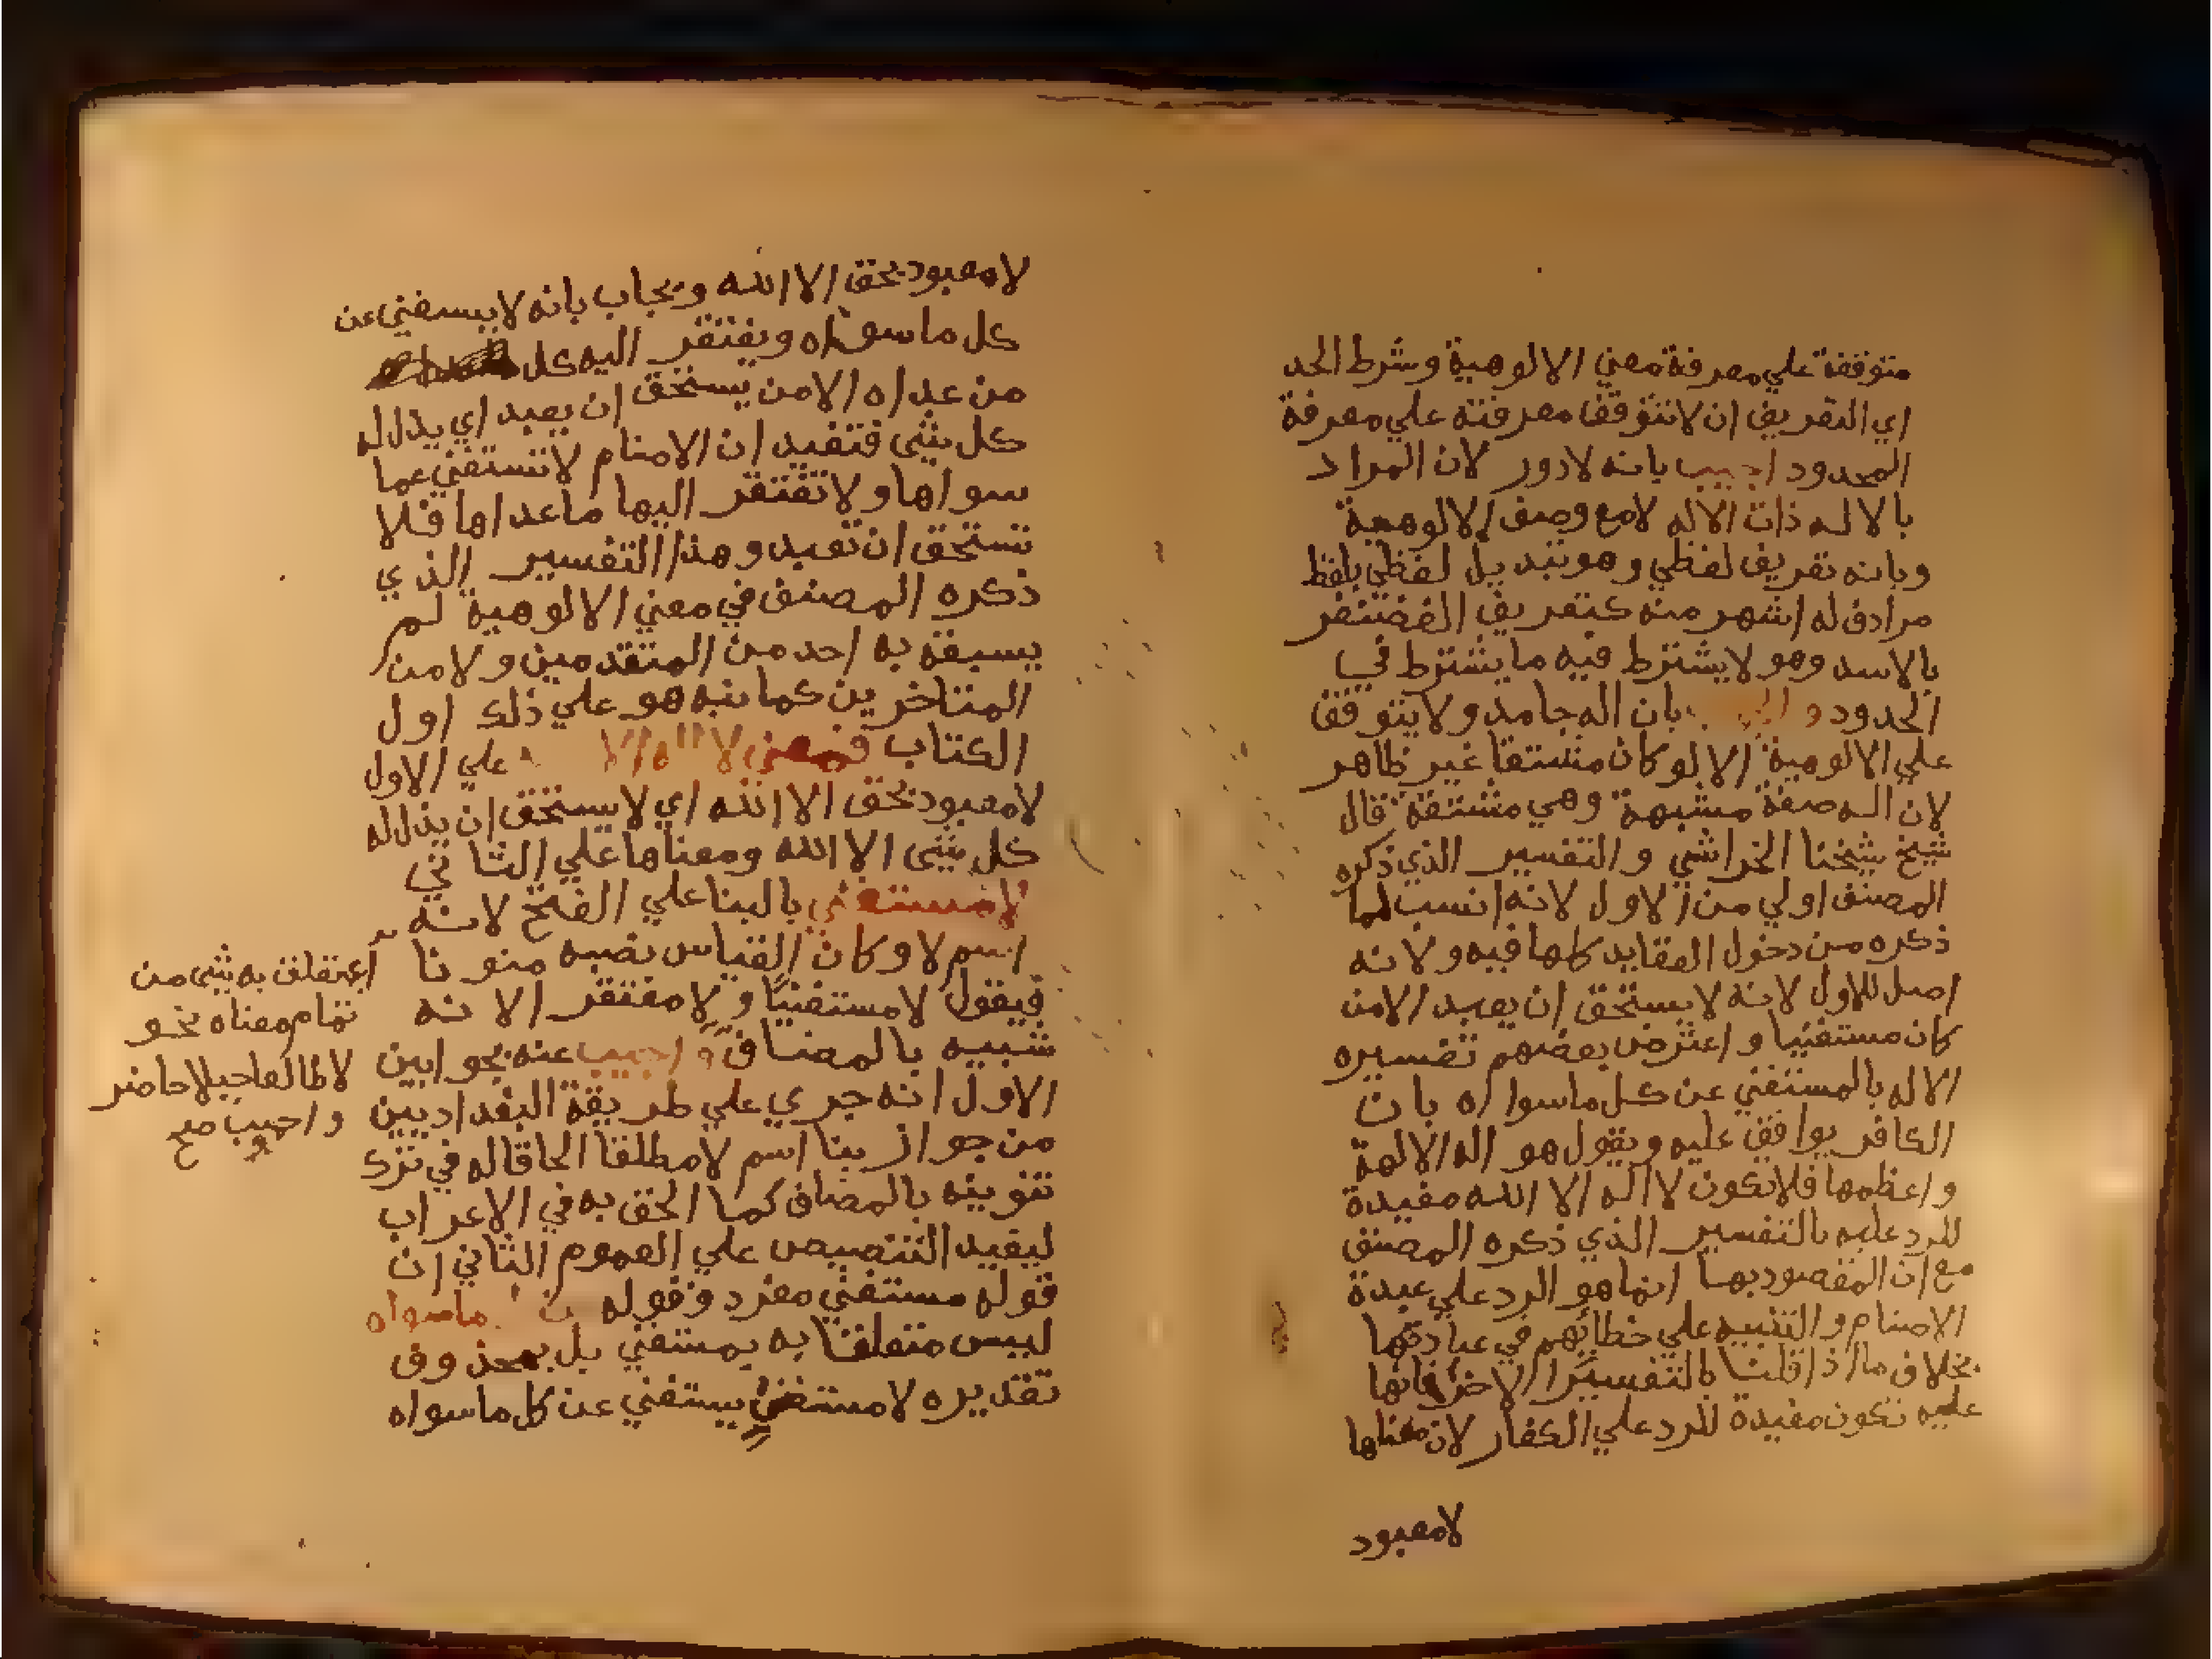 متوقفة علي معرفة معني الالوهية وشرط الحد
اي التعريف ان لا تتوقف معرفته علي معرفة
المحدود اجيب بانه لا دور لان المراد
بالاله ذات الاله لا مع وصف الالوهية
وبانه تعريف لفظي وهو تبديل لفظي بلفظ
مرادف له اشهر منه كتعريف الغضنفر
بالاسد وهو لا يشترط فيه ما يشترط في
الحدود و بان اله جامد ولا يتوقف
علي الالوهية الا لو كان مشتقا غير ظاهر
لان اله صفة مشبهة وهي مشتقة قال
شيخ شيخنا الخراشي والتفسير الذي ذكره
المصنف اولي من الاول لانه انسب لما
ذكره من دخول العقايد كلها فيه ولانه
اصل للاول لانه لا يستحق ان يعبد الا من
كان مستغنيا واعترض بعضهم تفسيره
الاله بالمستغني عن كل ما سواه بان
الكافر يوافق عليه ويقول هو اله الالهة
واعظمها فلا تكون لا اله الا الله مفيدة
للرد عليه بالتفسير الذي ذكره المصنف
مع ان المقصود بها انما هو الرد علي عبدة
الاصنام والتنبيه علي خطائهم في عبادتها
بخلاف ما اذا قلنا بالتفسير الاخر فانها
عليه تكون مفيدة للرد علي الكفار لان معناها
لا معبود
لا معبود بحق الا الله ويجاب بانه لا يستغني عن
كل ما سواه ويفتقر اليه كل
من عداه الا من يستحق ان يعبد اي يذل له
كل شئ فتفيد ان الاصنام لا تستغني عما
سواها ولا تفتقر اليها ما عداها فلا
تستحق ان تعبد وهذا التفسير الذي
ذكره المصنف في معني الالوهية لم
يسبقه به احد من المتقدمين ولا من
المتاخرين كما نبه هو علي ذلك اول
الكتاب فمعني لا اله الا علي الاول
لا معبود بحق الا الله اي لا يستحق ان يذل له
كل شئ الا الله ومعناها علي الثاني
لا مستغني بالبنا علي الفتح لانه
اسم لا وكان القياس نصبه منونا
فيقول لا مستغنيا ولا مفتقر الا نه
شبيه بالمضاف واجيب عنه بجوابين
الاول انه جري علي طريقة البغداديين
من جواز بنا اسم لا مطلقا الحاقا له في ترك
تنوينه بالمضاف كما الحق به في الاعراب
ليفيد التنصيص علي العموم الثاني ان
قوله مستغني مفرد وقوله ما سواه
ليس متعلقا به بمستغني بل بمحذوف
تقديره لا مستغني يستغني عن كل ما سواه
اعتقلق به شئ من
تمام معناه نحو
لا طالعا جبلا حاضر
واجيب صح